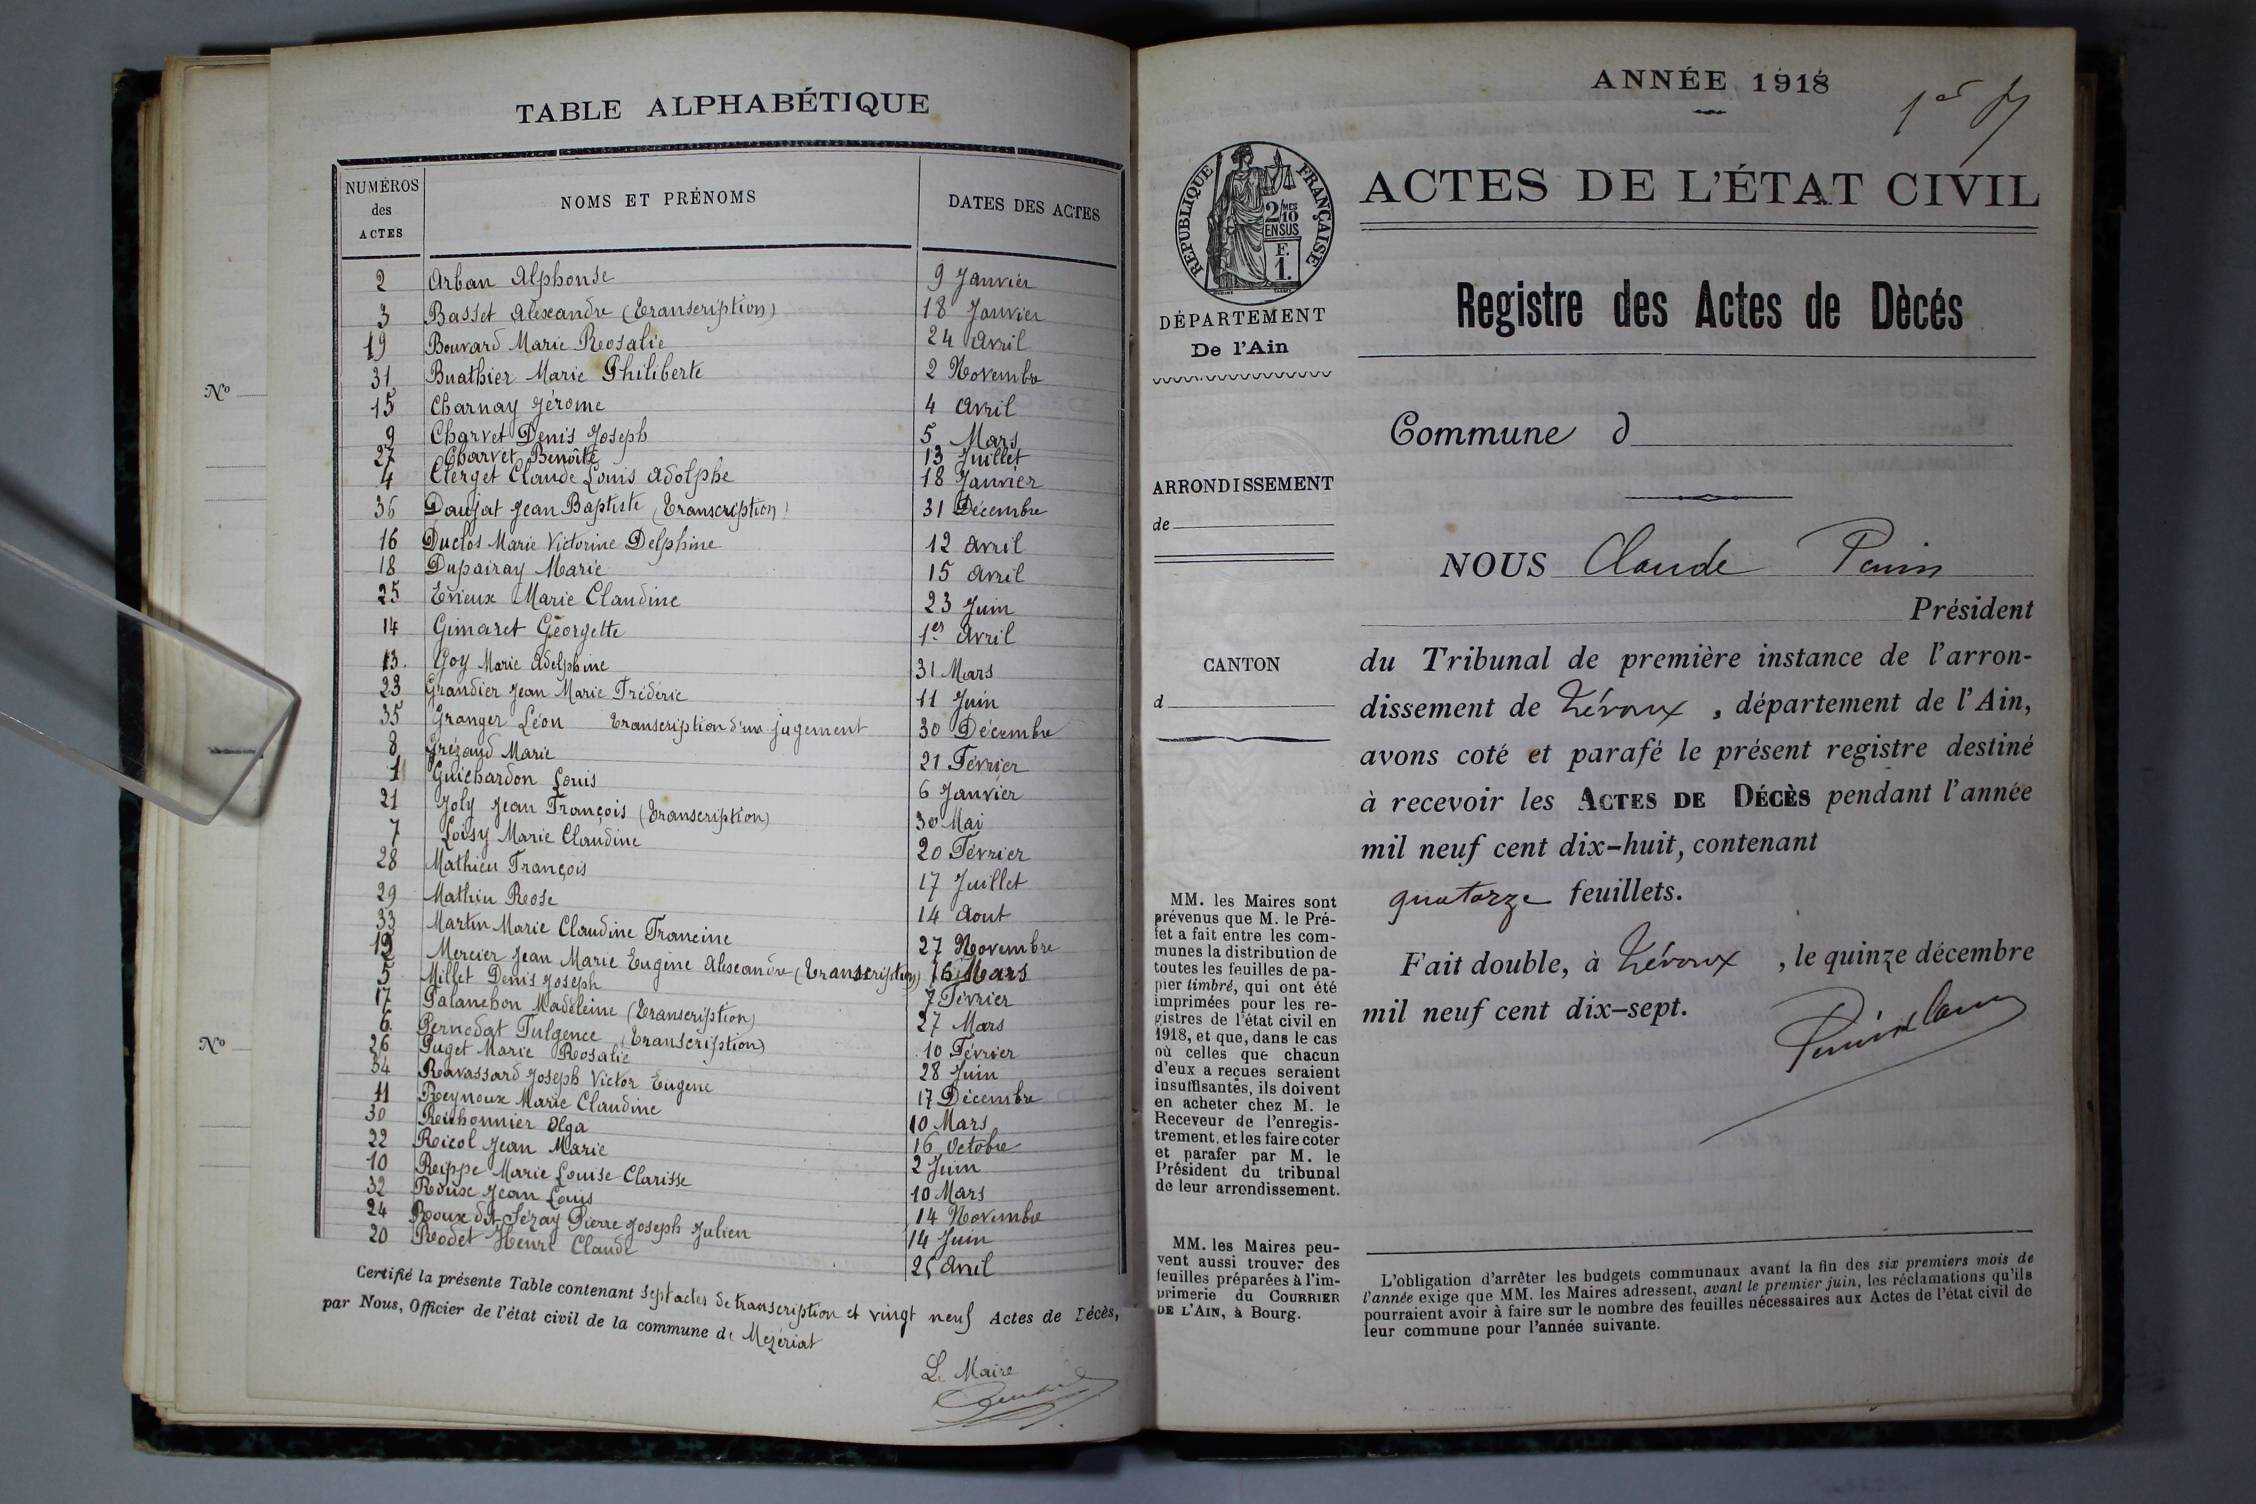 TABLE ALPHABÉTIQUE
NUMÉROS des ACTES
NOMS ET PRÉNOMS
DATES DES ACTES
2 Arban Alphonse 9 Janvier
3 Basset Alexandre (Transcription) 18 Janvier
19 Bouvard Marie Rosalie 24 Avril
31 Buathier Marie Philiberte 2 Novembre
15 Charnay Jérome 4 Avril
9 Charvet Denis Joseph 5 Mars
27 Charvet Benoîte 13 Juillet
4 Clerget Claude Louis Adolphe 18 Janvier
36 Daujat Jean Baptiste (Transcription) 31 Décembre
16 Duclos Marie Victorine Delphine 12 Avril
18 Dupairay Marie 15 Avril
25 Evieux Marie Claudine 23 Juin
14 Gimaret Georgette 1er Avril
13. Goy Marie Adelphine 31 Mars
23 Grandier Jean Marie Frédéric 11 Juin
35 Granger Léon Transcription d'un jugement 30 Décembre
8 Grézaud Marie 21 Février
1 Guichardon Louis 6 Janvier
21 Joly Jean François (Transcription) 30 Mai
7 Loisy Marie Claudine 20 Février
28 Mathieu François 17 Juillet
29 Mathieu Rose 14 Aout
33 Martin Marie Claudine Francine 27 Novembre
12 Mercier Jean Marie Eugène Alexandre (Transcription) 16 Mars
5 Millet Denis Joseph 7 Février
17 Palanchon Madeleine (Transcription) 27 Mars
6. Pernodat Fulgence (Transcription) 10 Février
26 Puget Marie Rosalie 28 Juin
34 Ravassard Joseph Victor Eugene 17 Décembre
11 Reynoux Marie Claudine 10 Mars
30 Richonnier Olga 16 Octobre
22 Ricol Jean Marie 2 Juin
10 Rippe Marie Louise Clarisse 10 Mars
32 Roux Jean Louis 14 Novembre
24 Roux dit Sézay Pierre Joseph Julien 14 Juin
20 Rodet Henri Claude 25 Avril
Certifié la présente Table contenant sept actes de transcription et vingt neuf Actes de Décès,
par Nous, Officier de l'état civil de la commune de Mezériat
Le Maire
No
No
ANNÉE 1918
RÉPUBLIQUE FRANÇAISE
2/10 MES
EN SUS
F.
1.
ACTES DE L'ÉTAT CIVIL
Registre des Actes de Dècés
DÉPARTEMENT
De l'Ain
Commune d
ARRONDISSEMENT
de
CANTON
d
NOUS Claude Perrin
Président
du Tribunal de première instance de l'arron-
dissement de Trévoux, département de l'Ain,
avons coté et parafé le présent registre destiné
à recevoir les ACTES DE DÉCÈS pendant l'année
mil neuf cent dix-huit, contenant
quatorze feuillets.
Fait double, à Trévoux, le quinze décembre
mil neuf cent dix-sept.
MM. les Maires sont
prévenus que M. le Pré-
fet a fait entre les com-
munes la distribution de
toutes les feuilles de pa-
pier timbré, qui ont été
imprimées pour les re-
gistres de l'état civil en
1918, et que, dans le cas
où celles que chacun
d'eux a reçues seraient
insuffisantes, ils doivent
en acheter chez M. le
Receveur de l'enregis-
trement, et les faire coter
et parafer par M. le
Président du tribunal
de leur arrondissement.
MM. les Maires peu-
vent aussi trouver des
feuilles préparées à l'im-
primerie du COURRIER
DE L'AIN, à Bourg.
L'obligation d'arrêter les budgets communaux avant la fin des six premiers mois de
l'année exige que MM. les Maires adressent, avant le premier juin, les réclamations qu'ils
pourraient avoir à faire sur le nombre des feuilles nécessaires aux Actes de l'état civil de
leur commune pour l'année suivante.